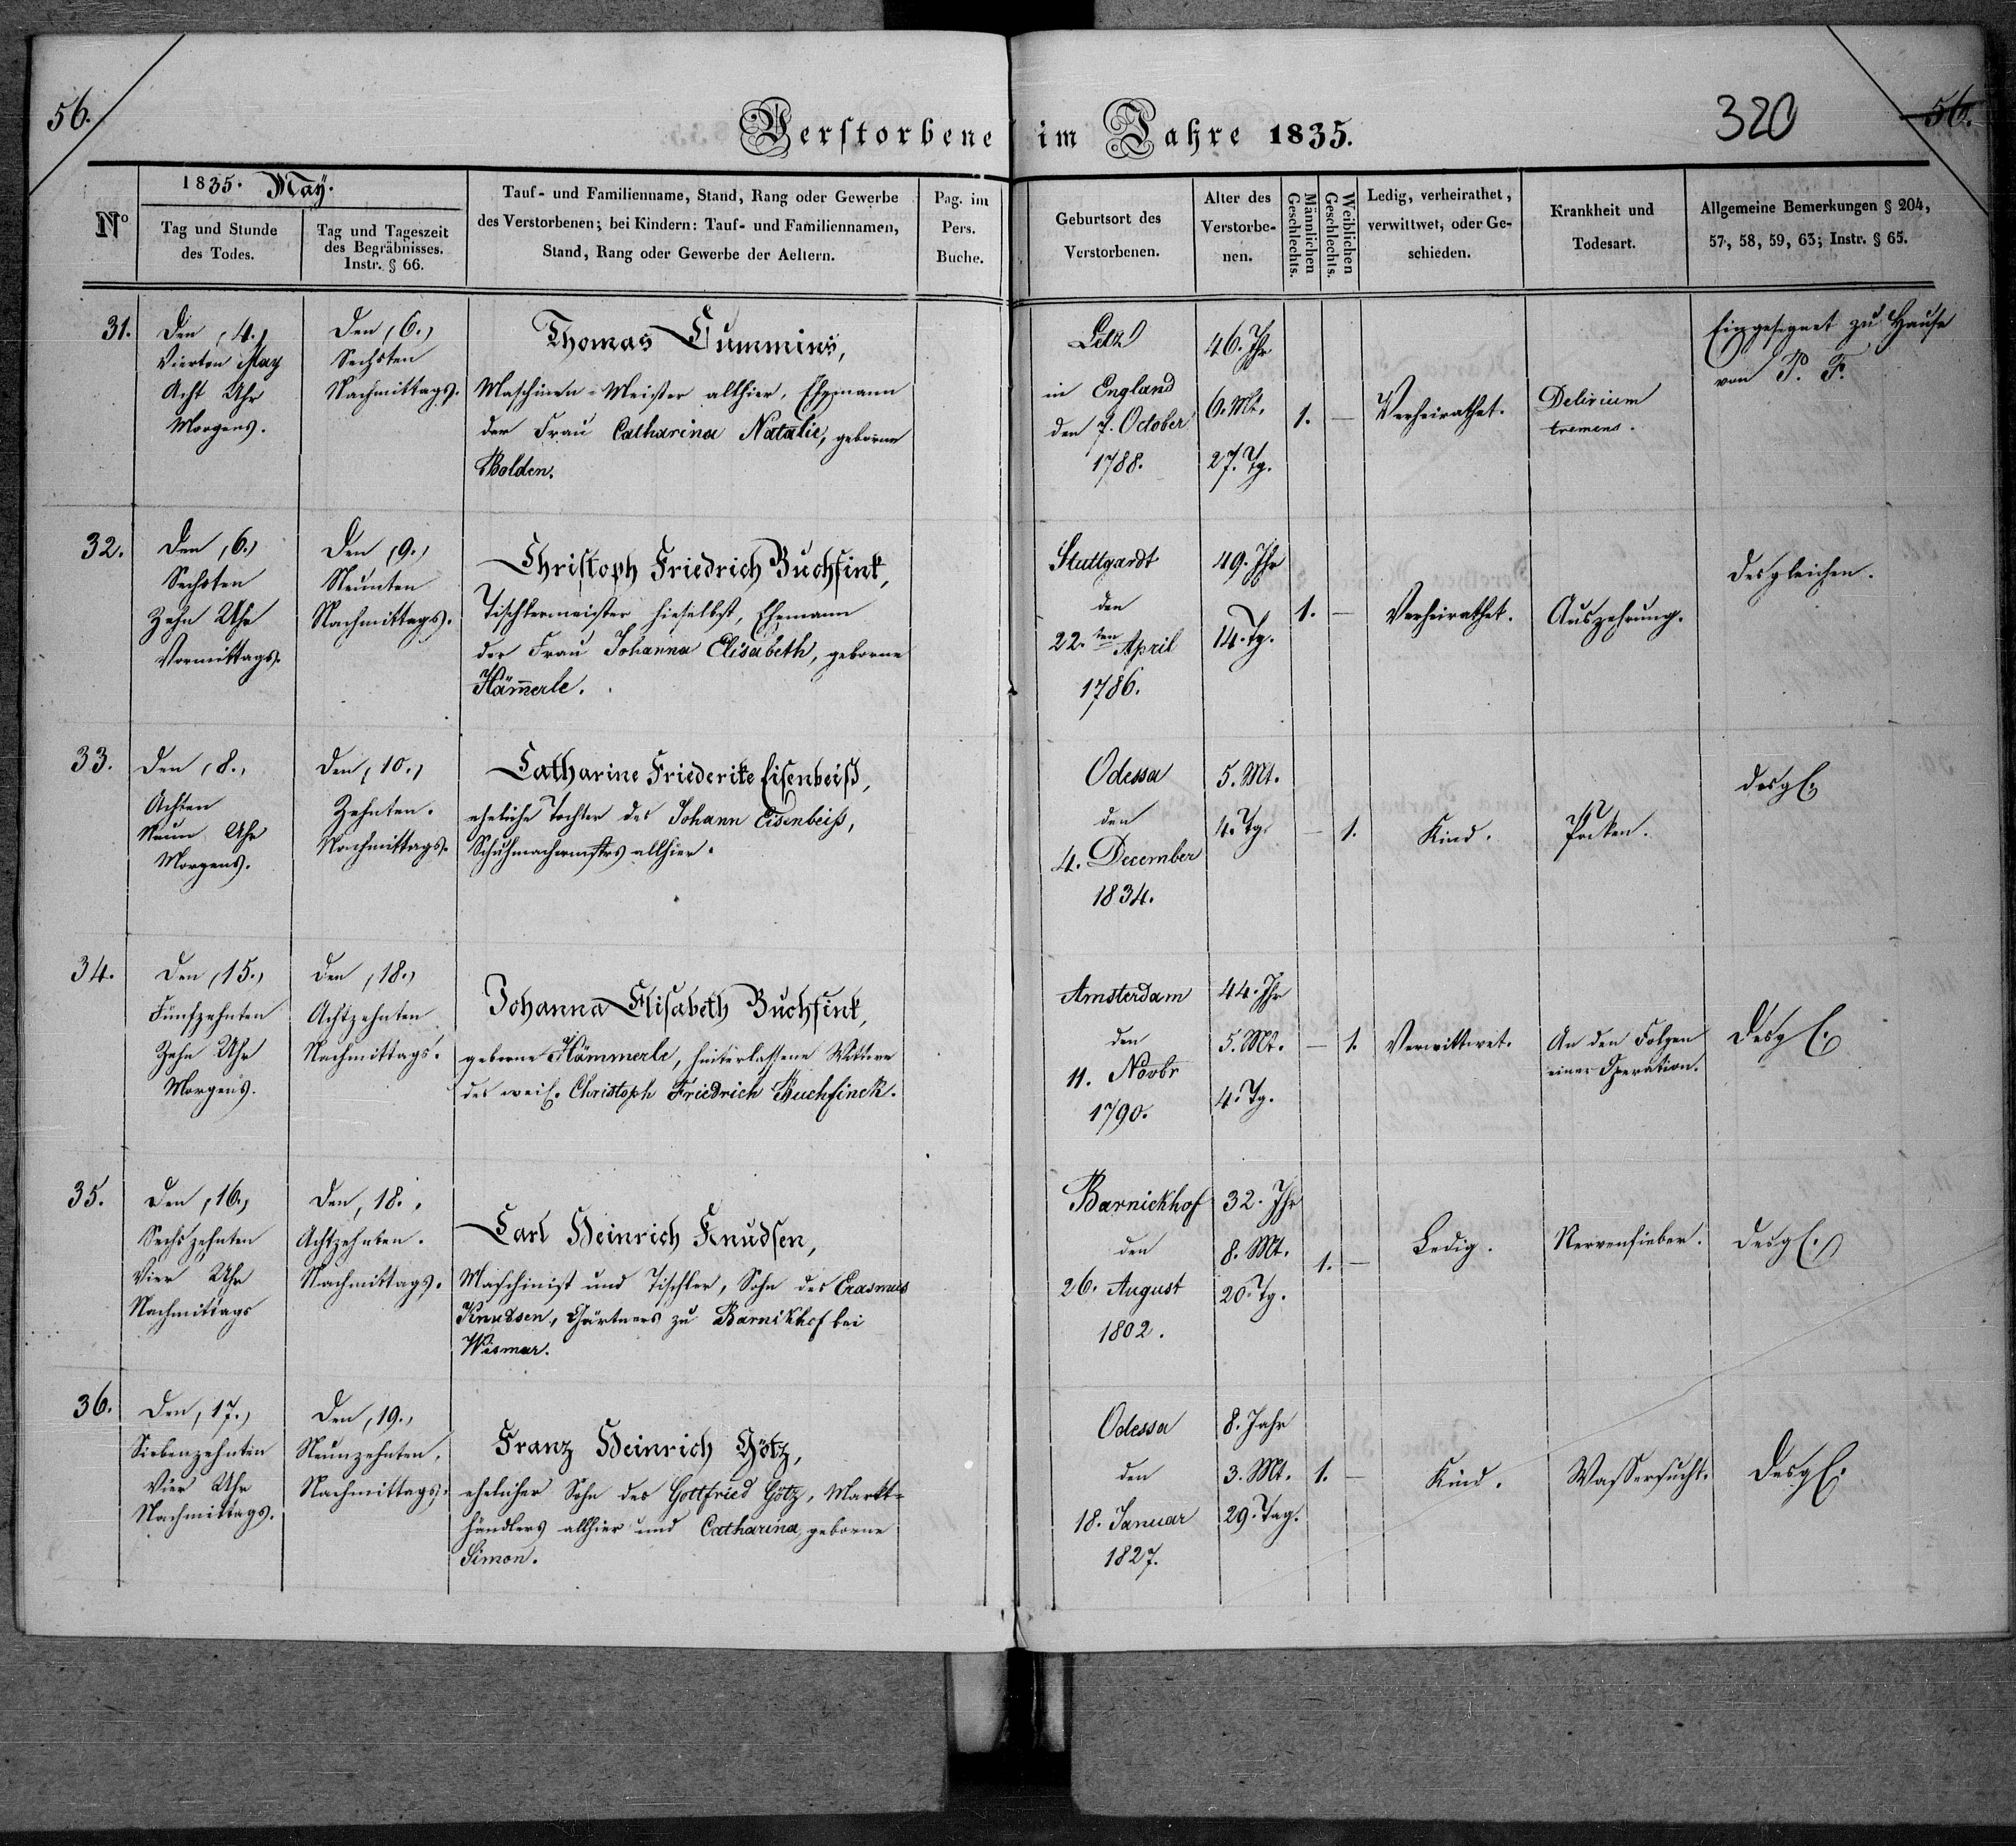 56.
Verstorbene im Jahre 1835.
320
56.
No
1835. May.
Tag und Stunde
des Todes.
Tag und Tageszeit
des Begräbnisses.
Instr. § 66.
Tauf- und Familienname, Stand, Rang oder Gewerbe
des Verstorbenen; bei Kindern: Tauf- und Familiennamen,
Stand, Rang oder Gewerbe der Aeltern.
Pag. im
Pers.
Buche.
Geburtsort des
Verstorbenen.
Alter des
Verstorbe-
nen.
Männlichen
Geschlechts.
Weiblichen
Geschlechts.
Ledig, verheirathet,
verwittwet, oder Ge-
schieden.
Krankheit und
Todesart.
Allgemeine Bemerkungen § 204,
57, 58, 59, 63; Instr. § 65.
31.
Den (4.)
Vierten May
Acht Uhr
Morgens.
Den (6.)
Sechsten
Nachmittags.
Thomas Cummins,
Maschinen-Meister allhier, Ehemann
der Frau Catharina Natalie, geborne
Bolden.
in England
den 7. October
1788.
46. Jhr
6. Mt.
27. Tg.
1.
—
Verheirathet.
Delirium
tremens.
Eingesegnet zu Hause
von P. F.
32.
Den (6.)
Sechsten
Zehn Uhr
Vormittags.
Den (9.)
Neunten
Nachmittags.
Christoph Friedrich Buchfink,
Tischlermeister hieselbst, Ehemann
der Frau Johanna Elisabeth, geborne
Häm̄erle.
Stuttgardt
den
22.ten April
1786.
49. Jhr
14. Tg.
1.
—
Verheirathet.
Auszehrung.
Desgleichen.
33.
Den (8.)
Achten
Neun Uhr
Morgens.
Den (10.)
Zehnten.
Nachmittags.
Catharine Friederike Eisenbeiß,
eheliche Tochter des Johann Eisenbeiß,
Schuhmachermstrs allhier.
Odessa
den
4. December
1834.
5. Mt.
4. Tg.
—
1.
Kind.
Pocken.
desgl.
34.
Den (15.)
Fünfzehnten
Zehn Uhr
Morgens.
Den (18.)
Achtzehnten
Nachmittags.
Johanna Elisabeth Buchfink,
geborne Hämmerle, hinterlassene Wittwe
des weil. Christoph Friedrich Buchfinck.
Amsterdam
den
11. Novbr
1790.
44. Jhr
5. Mt.
4. Tg.
—
1.
Verwittwet.
An den Folgen
einer Operation.
Desgl.
35.
Den (16.)
Sechszehnten
Vier Uhr
Nachmittags
Den (18.)
Achtzehnten.
Nachmittags.
Carl Heinrich Knudsen,
Maschinist und Tischler, Sohn des Erasmus
Knudsen, Gärtners zu Barnikhof bei
Wismar.
Barnickhof
den
26. August
1802.
32. Jhr
8. Mt.
20. Tg.
1.
—
Ledig.
Nervenfieber.
Desgl.
36.
Den (17.)
Siebenzehnten
Vier Uhr
Nachmittags.
Den (19.)
Neunzehnten.
Nachmittags.
Franz Heinrich Götz,
ehelicher Sohn des Gottfried Götz, Markt-
händlers allhier und Catharina, geborne
Simon.
Odessa
den
18. Januar
1827.
8. Jahr
3. Mt.
29. Tag.
1.
—
Kind.
Wassersucht.
Desgl.